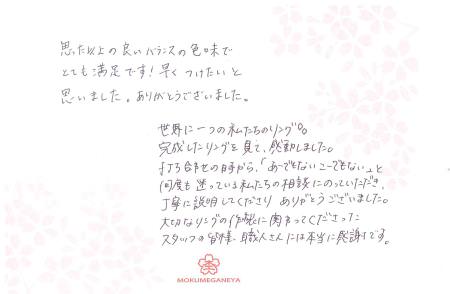 思った以上の良いバランスの色味で
とても満足です！早くつけたいと
思いました。ありがとうございました。
世界に一つの私たちのリング。
完成したリングを見て、感動しました。
打ち合せの時から、「あーでもないこーでもない」と
何度も迷っている私たちの相談にのっていただき、
丁寧に説明してくださり ありがとうございました。
大切なリングの作製に関わってくださった
スタッフの皆様、職人さんには本当に感謝です。
MOKUMEGANEYA